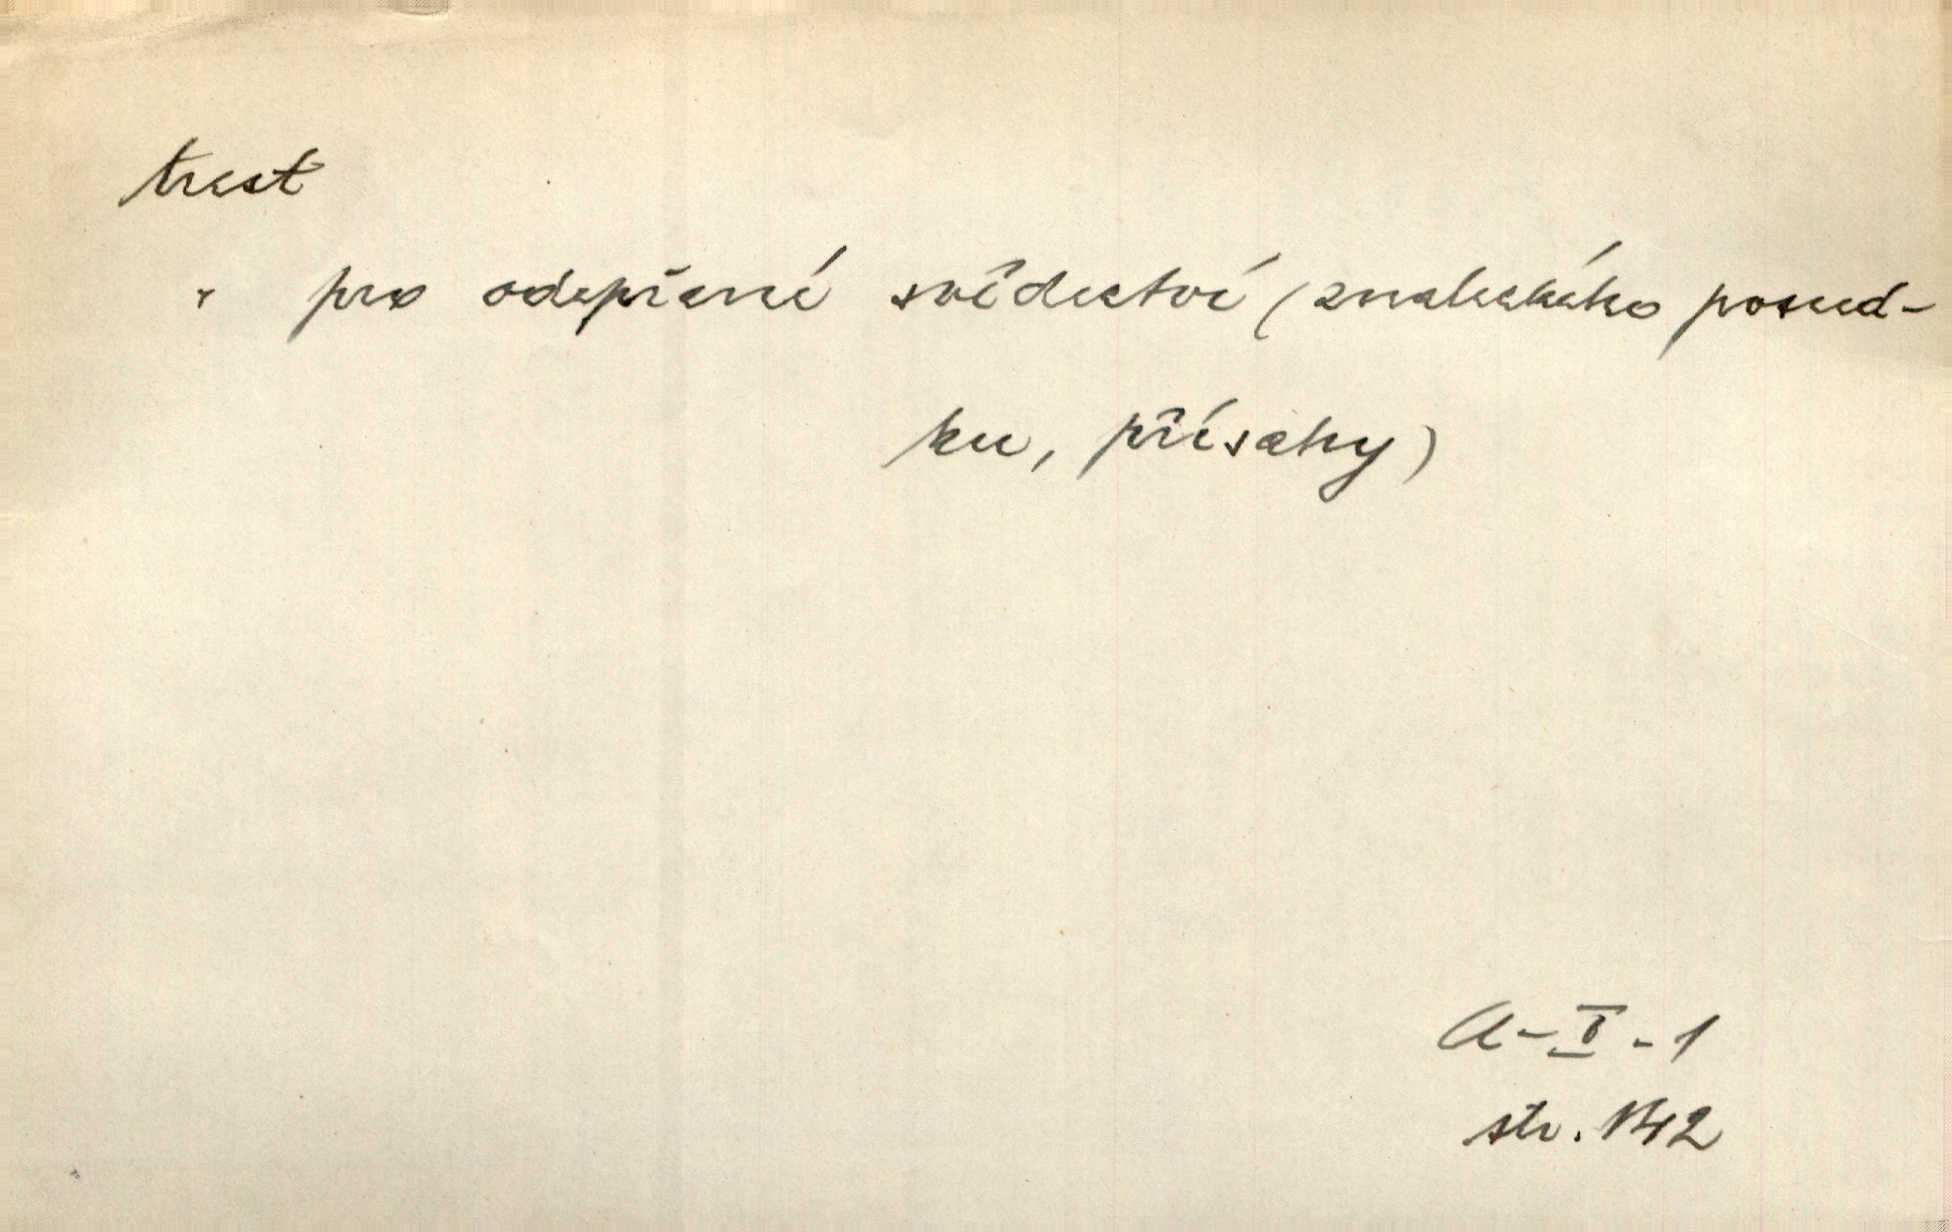 trest
" pro odepřené svědectví (znaleckého posud-
ku, přísahy)
A-I-1
str. 142